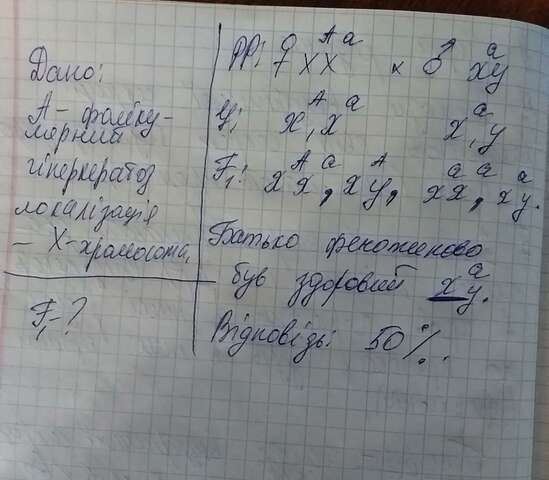 Дано:
А - фоліку-
лярний
гіперкератоз
локалізація
- X-хромосома,
F₁ - ?
PP: ♀ XᴬXᵃ × ♂ Xᵃy
G: Xᴬ, Xᵃ Xᵃ, y
F₁: XᴬXᵃ, Xᴬy, XᵃXᵃ, Xᵃy.
Батько фенотипово
був здоровий Xᵃy.
Відповідь: 50%.